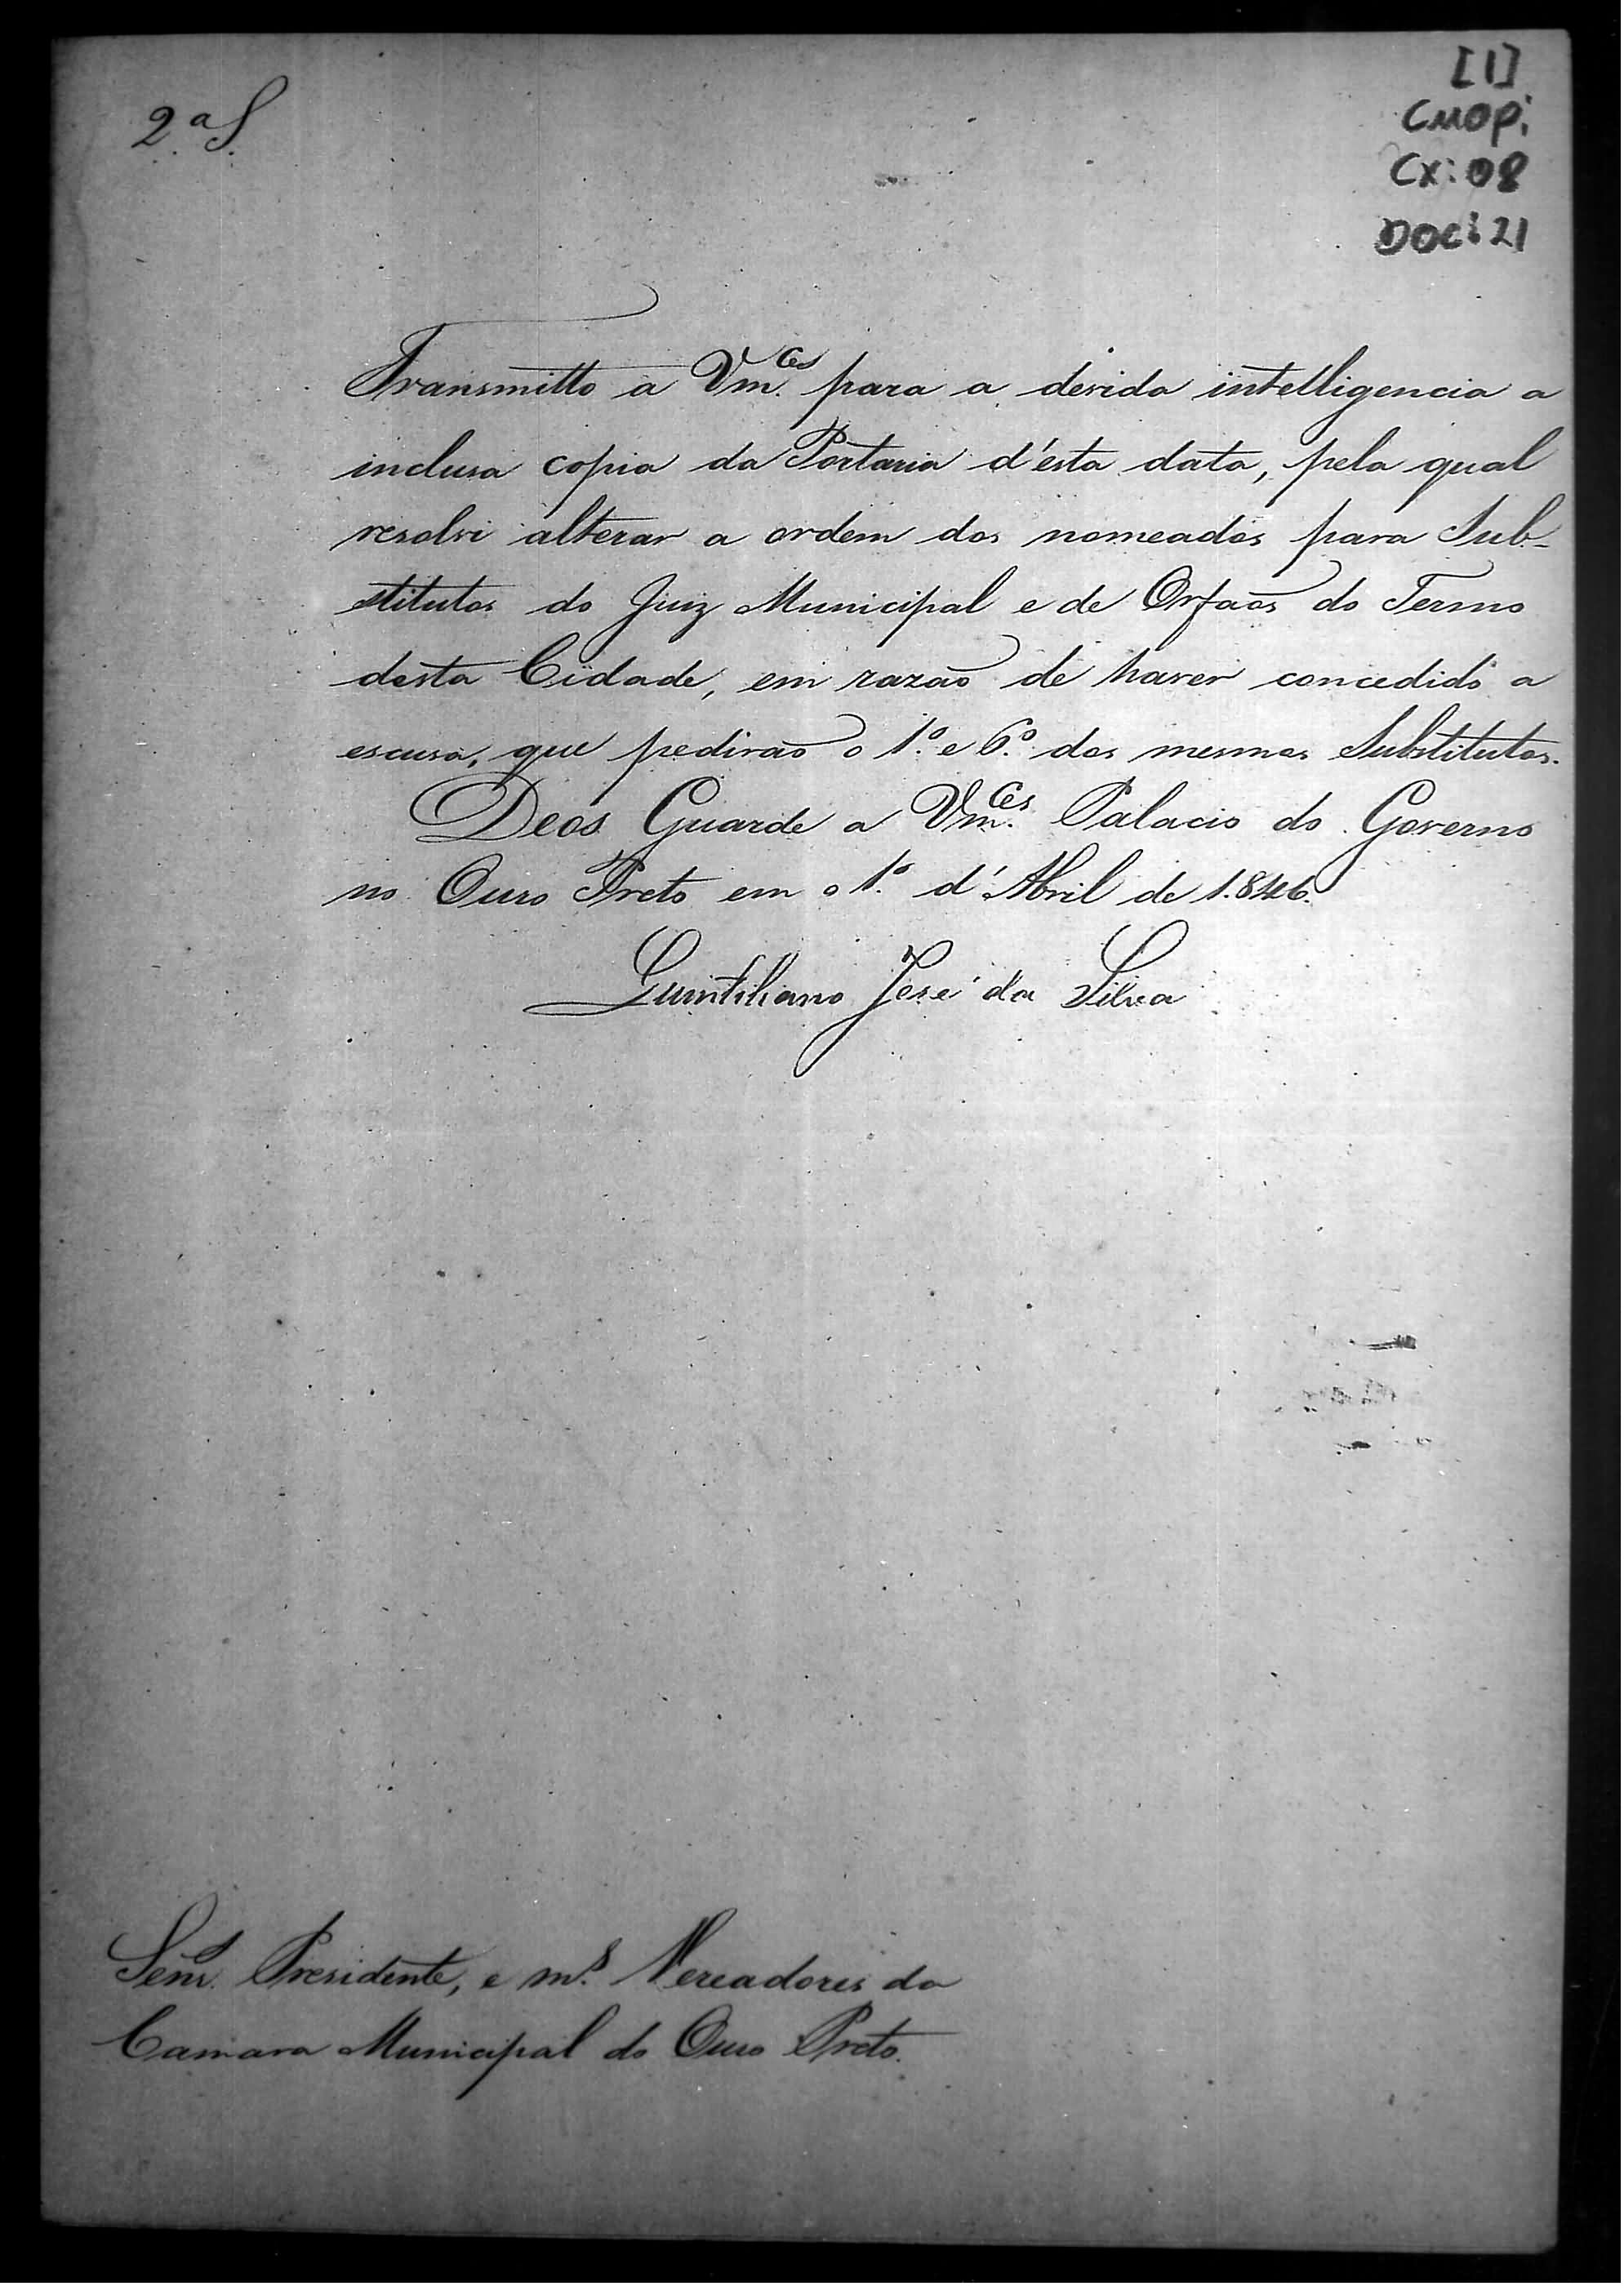 2.ª S.
[1]
CMOP:
CX: 08
DOC: 21
Transmitto a Vm.ces para a devida intelligencia a
inclusa copia da Portaria d'ésta data, pela qual
resolvi alterar a ordem dos nomeados para Sub-
stitutos do Juiz Municipal e de Orfaõs do Termo
desta Cidade, em razaõ de haver concedido a
escusa, que pediraõ o 1.º e 6.º dos mesmos Substitutos.
Deos Guarde a Vm.ces Palacio do Governo
no Ouro Preto em o 1.º d'Abril de 1.846.
Quintiliano José da Silva
Senr.s Presidente, e m.s Vereadores da
Camara Municipal do Ouro Preto.